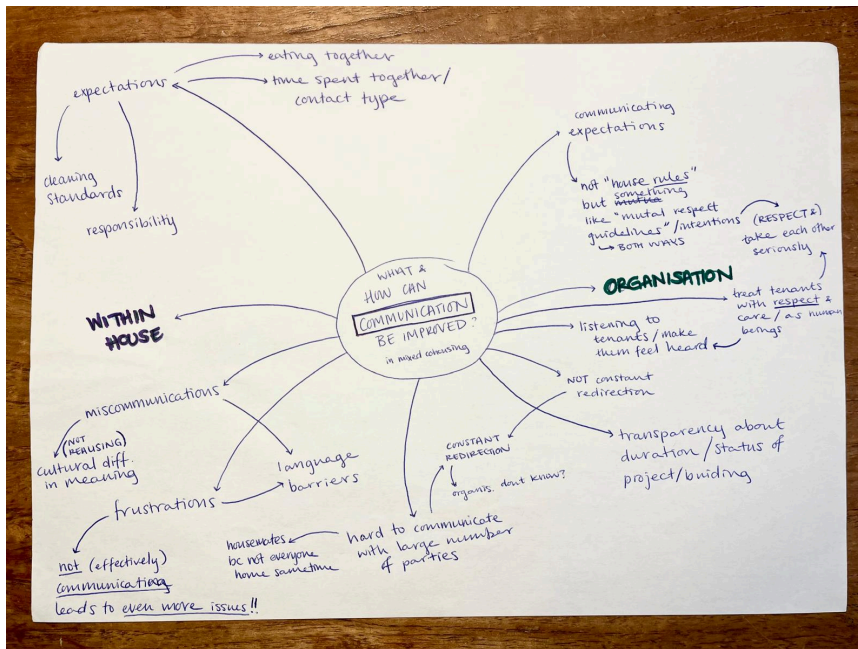 WHAT &
HOW CAN
COMMUNICATION
BE IMPROVED?
in mixed cohousing
expectations
eating together
time spent together/
contact type
cleaning
standards
responsibility
WITHIN
HOUSE
miscommunications
(NOT
REALISING)
cultural diff.
in meaning
language
barriers
frustrations
not (effectively)
communicating
leads to even more issues!!
hard to communicate
with large number
of parties
housemates
bc not everyone
home sametime
CONSTANT
REDIRECTION
organis. dont know?
communicating
expectations
not "house rules"
but something
mutua
like "mutal respect
guidelines"/intentions
→ BOTH WAYS
(RESPECT &)
take each other
seriously
ORGANISATION
treat tenants
with respect &
care/as human
beings
listening to
tenants/make
them feel heard
NOT constant
redirection
transparency about
duration/status of
project/buiding